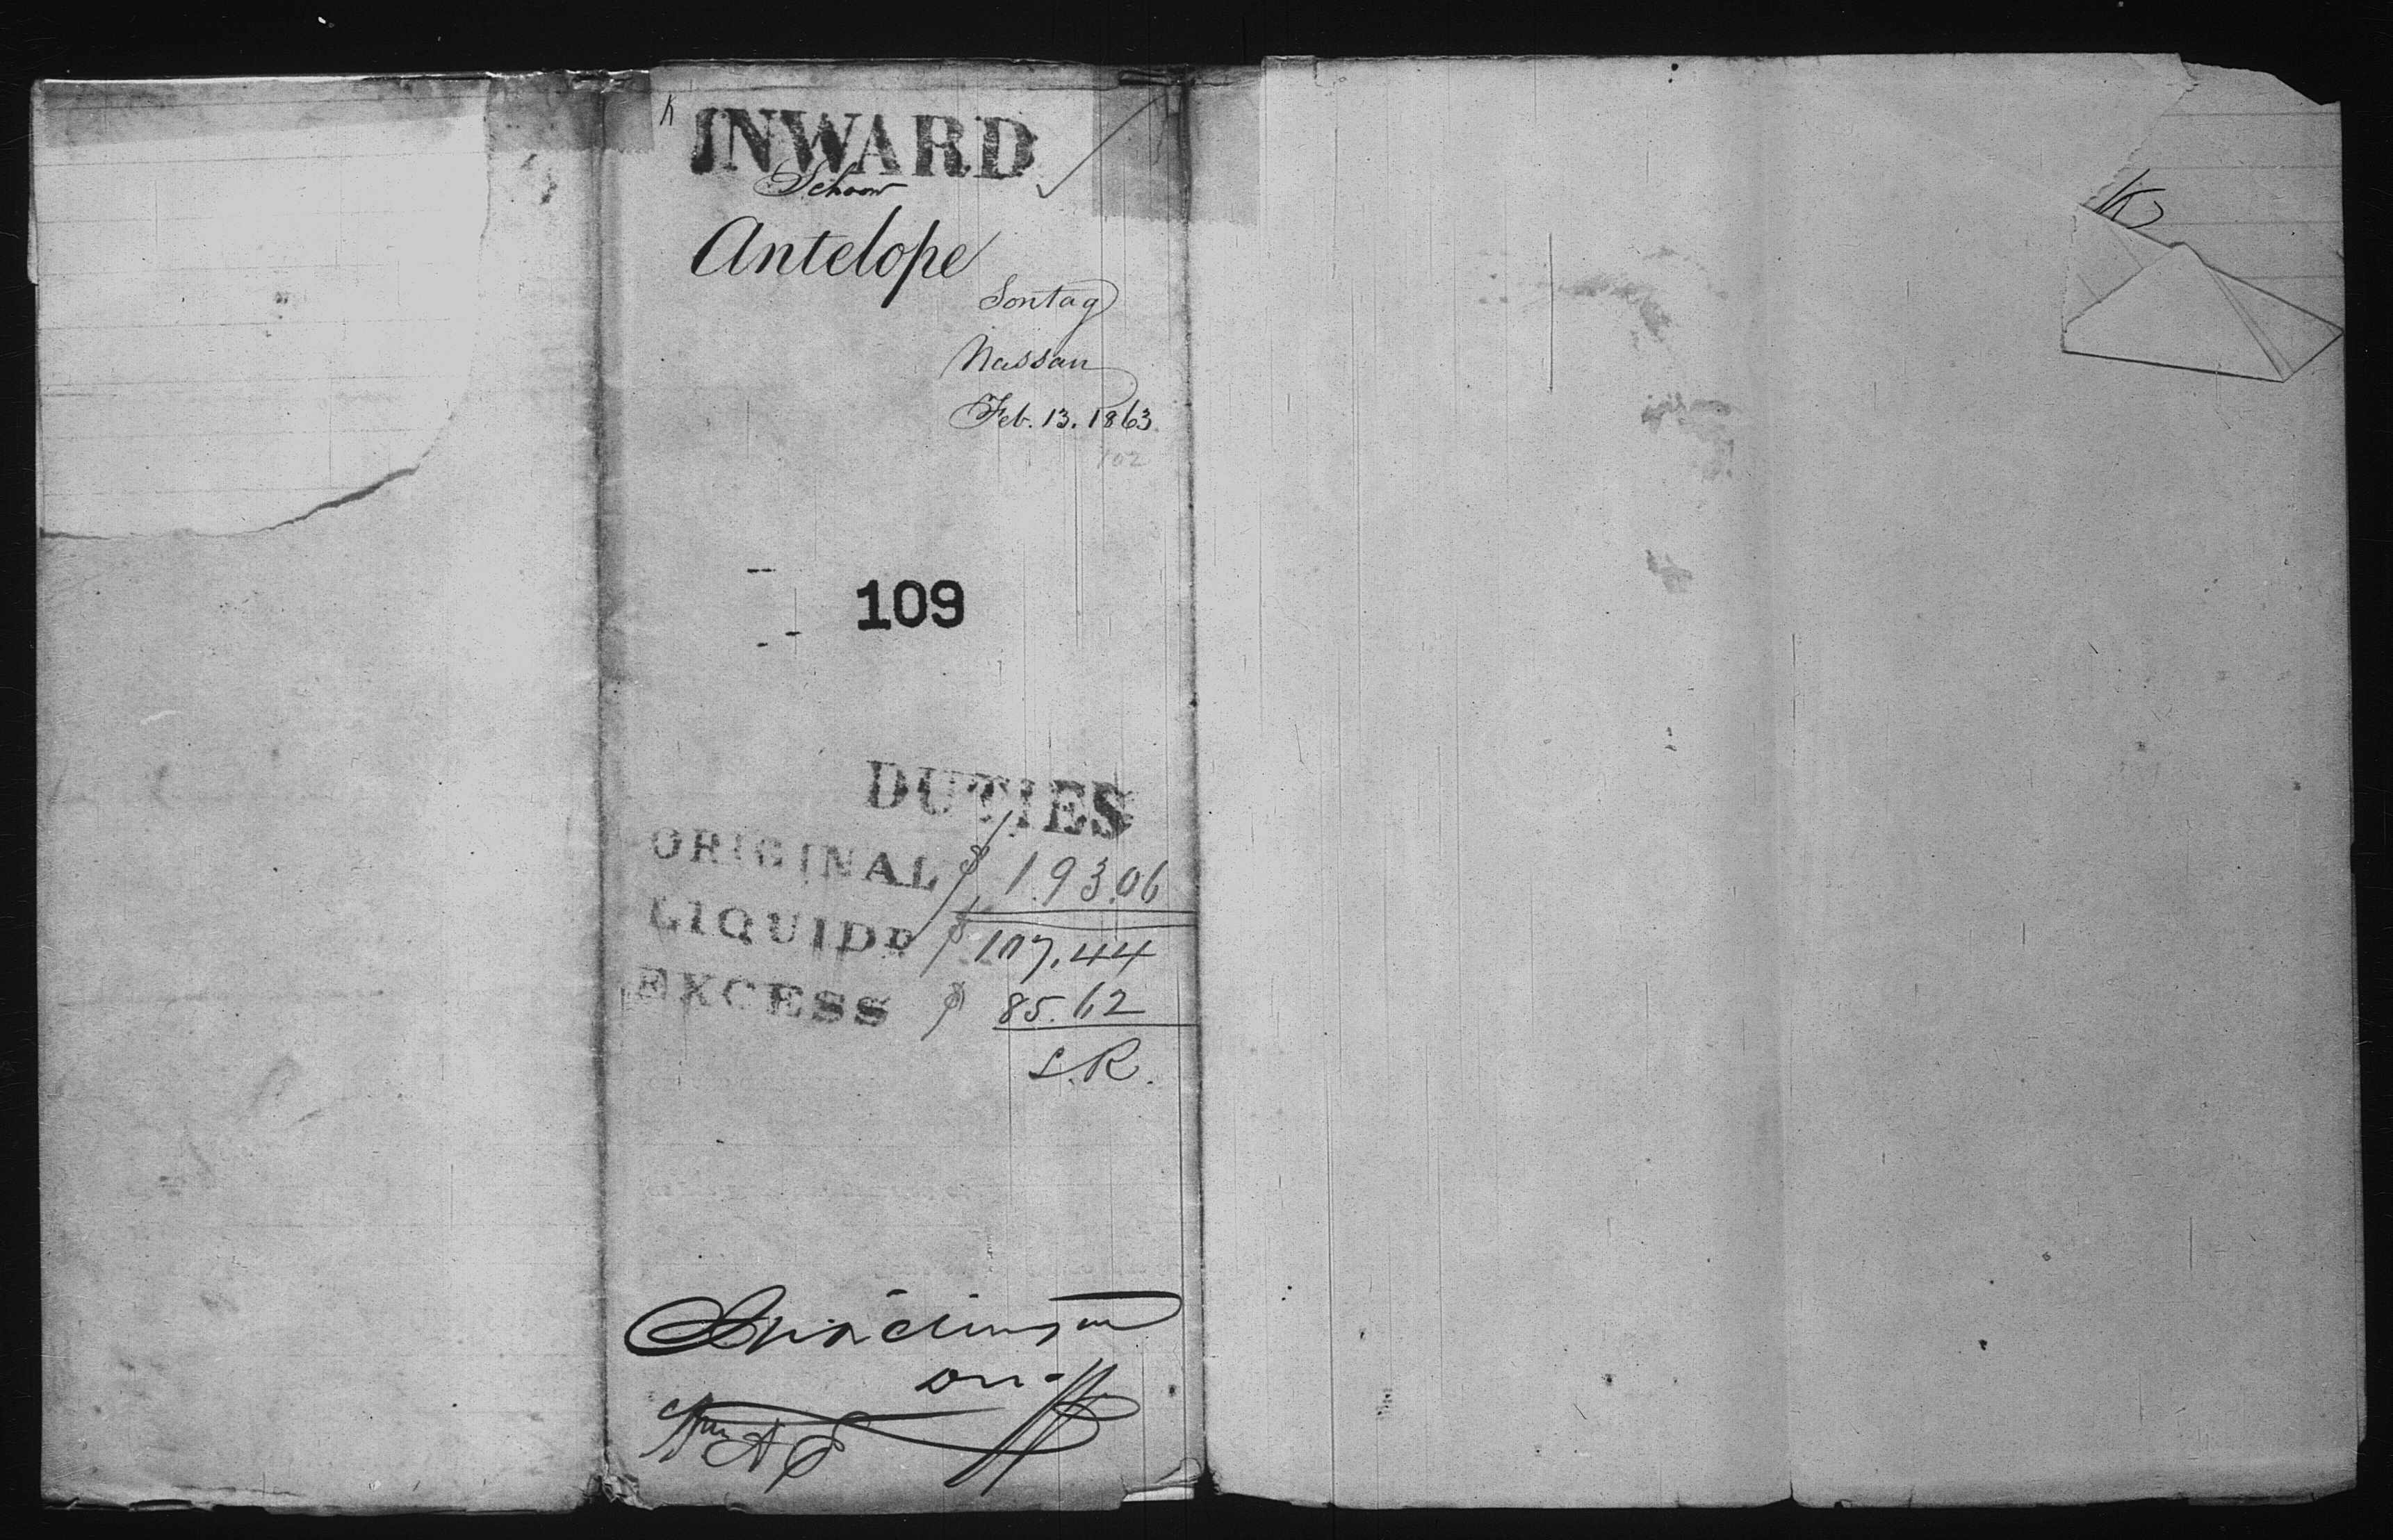 K INWARD
Schoon
Antelope
Sontag
Nassau
Feb. 13. 1863
102
109
DUTIES
ORIGINAL $ 193.06
LIQUIDD $ 107.44
EXCESS $ 85.62
L.R.
K